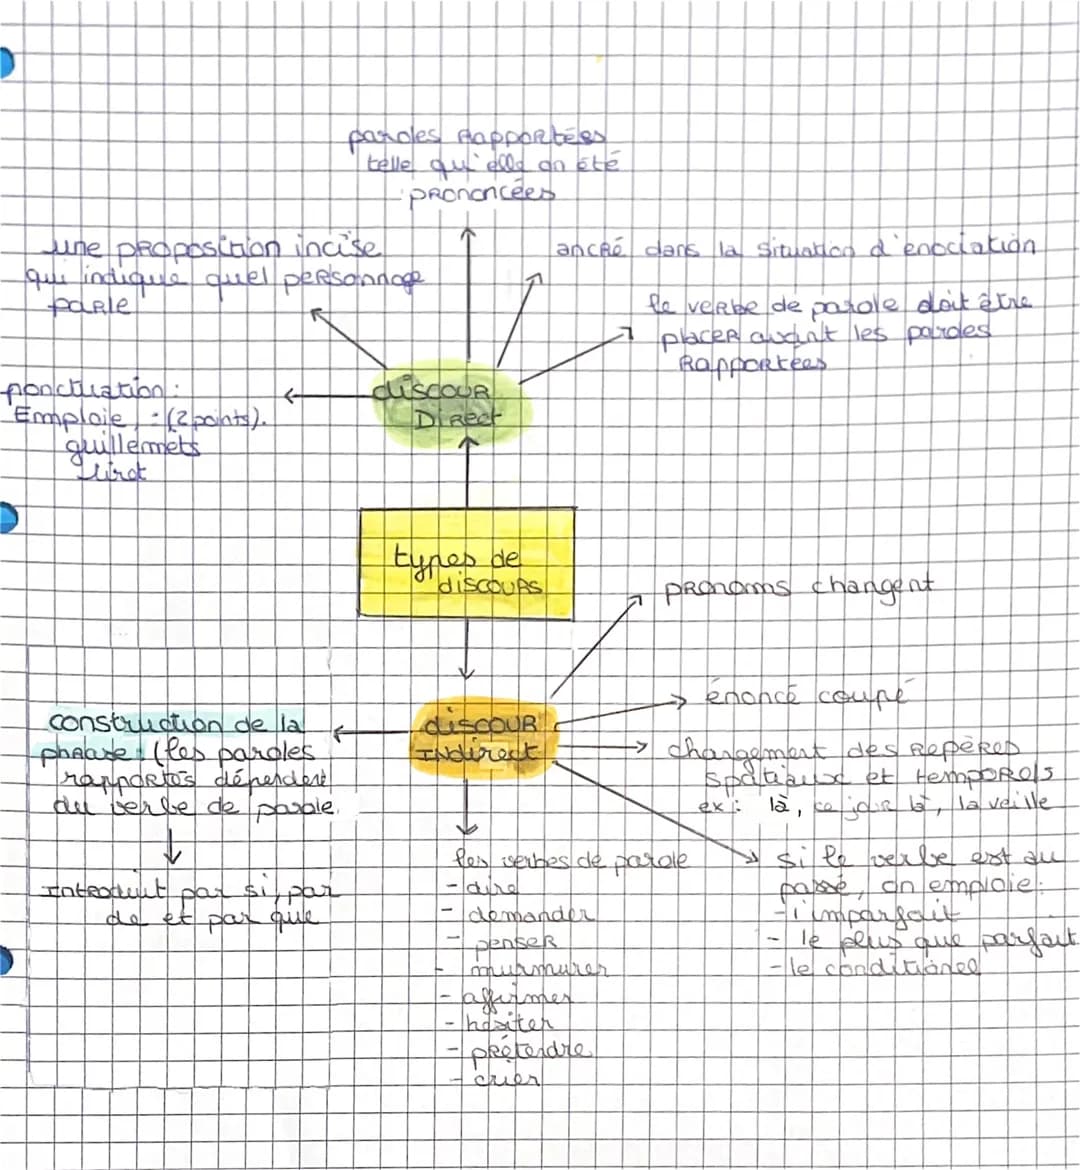 paroles Rapportées
telle qu'elle on été
prononcées
une proposition incise
qui indique quel personnage
parle
ancré dans la situation d'enociation
le verbe de parole doit être
placer avant les paroles
Rapportées
ponctuation :
Emploie : (2 points).
guillemets
tiret
discour
Direct
types de
discours
pronoms changent
énoncé coupé
discour
Indirect
changement des Repères
spatiaux et temporels
ex : là, ce jour là, la veille
construction de la
phrase : (les paroles
rapportés dépendent
du verbe de parole.
Introduit par si, par
de et par que
les verbes de parole
- dire
- demander
- penser
- murmurer
- affirmer
- hésiter
- prétendre
- crier
si le verbe est au
passé, on emploie :
- l'imparfait
- le plus que parfait
- le conditionel